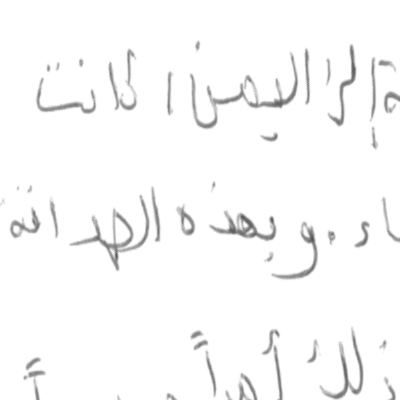 ة إلى اليمن، كانت
اء. وبهذه الصداقة
ذلك أهدأ